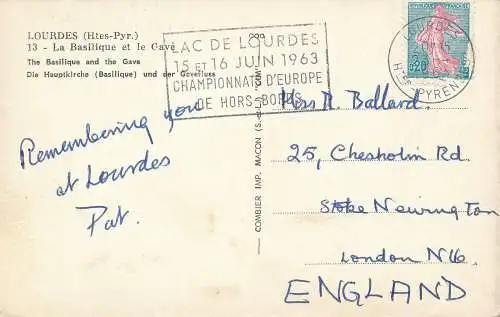 LOURDES (Htes-Pyr.)
13 - La Basilique et le Gave
The Basilique and the Gave
Die Hauptkirche (Basilique) und der Gavefluss
LAC DE LOURDES
15 ET 16 JUIN 1963
CHAMPIONNATS D'EUROPE
DE HORS-BORDS
LOURDES
HTES PYRENEES
0,20
Remembering you
at Lourdes
Pat.
COMBIER IMP. MACON (S.-et-L.) "CIM"
Miss R. Ballard.
25, Chesholm Rd
Stoke Newington
London N16
ENGLAND